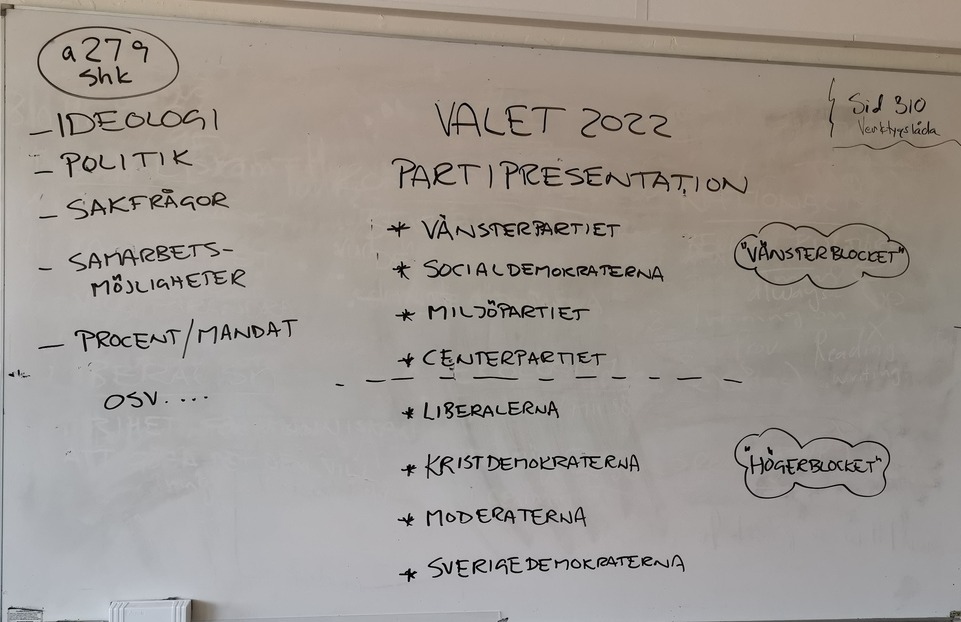 a279
shk
- IDEOLOGI
- POLITIK
- SAKFRÅGOR
- SAMARBETS-
MÖJLIGHETER
- PROCENT/MANDAT
OSV....
VALET 2022
PARTIPRESENTATION
* VÄNSTERPARTIET
* SOCIALDEMOKRATERNA
* MILJÖPARTIET
* CENTERPARTIET
* LIBERALERNA
* KRISTDEMOKRATERNA
* MODERATERNA
* SVERIGEDEMOKRATERNA
Sid 310
Verktygslåda
"VÄNSTERBLOCKET"
"HÖGERBLOCKET"